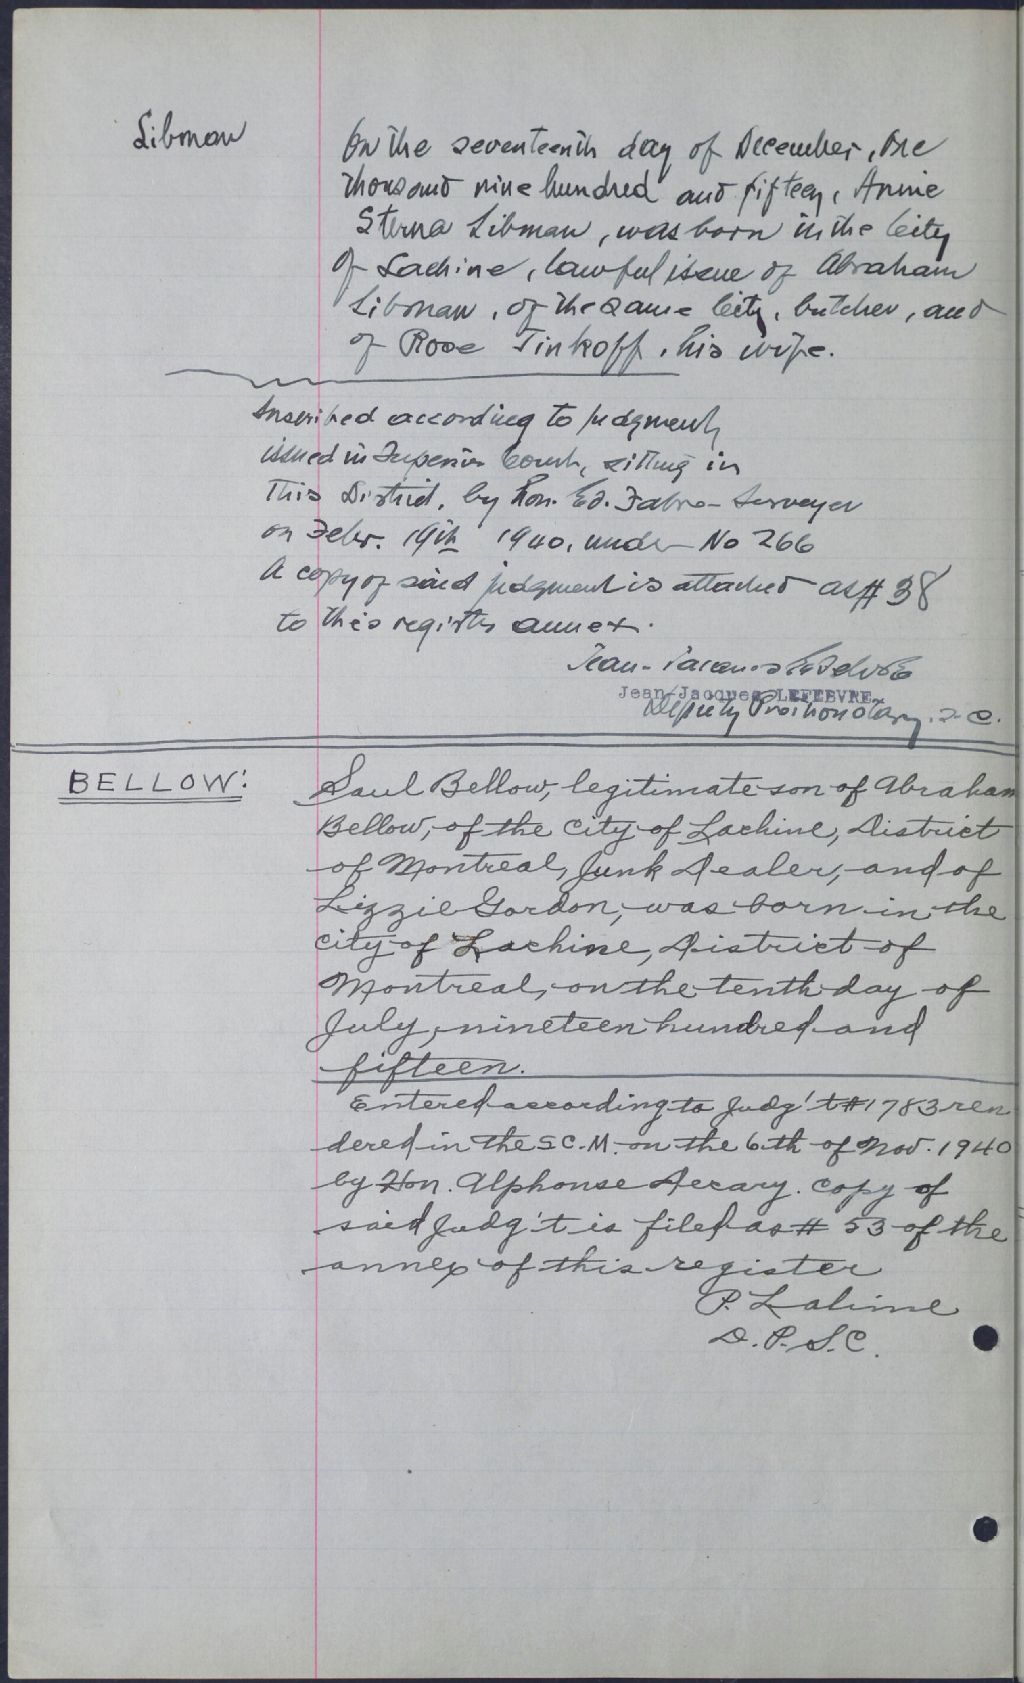 Libman
On the seventeenth day of December, one
thousand nine hundred and fifteen, Annie
Sterna Libman, was born in the City
of Lachine, lawful issue of Abraham
Libman, of the same City, butcher, and
of Rose Tinkoff, his wife.
Inscribed according to judgment,
issued in Superior Court, sitting in
This District, by Hon. Ed. Fabre-Surveyer
on Febr. 19th 1940, under No 266
A copy of said judgment is attached as # 38
to this register annex.
Jean-Jacques Lefebvre
Jean-Jacques LEFEBVRE
Deputy Prothonotary. S.C.
BELLOW:
Saul Bellow, legitimate son of Abraham
Bellow, of the city of Lachine, District
of Montreal, Junk Dealer, and of
Lizzie Gordon, was born in the
city of Lachine, District of
Montreal, on the tenth day of
July, nineteen hundred and
fifteen.
Entered according to Judg't # 1783 ren
dered in the S.C.M. on the 6th of Nov. 1940
by Hon. Alphonse Decary. Copy of
said Judg't is filed as # 53 of the
annex of this register
P. Lalime
D.P.S.C.